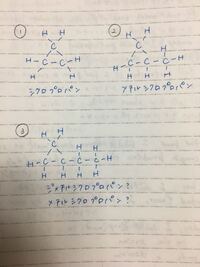 ①
H H
C
H-C-C-H
H H
シクロプロパン
②
H H
C H
H-C-C-C-H
H H H
メチルシクロプロパン
③
H H
C H H
H-C-C-C-C-H
H H H H
ジメチルシクロプロパン?
メチルシクロプロパン?